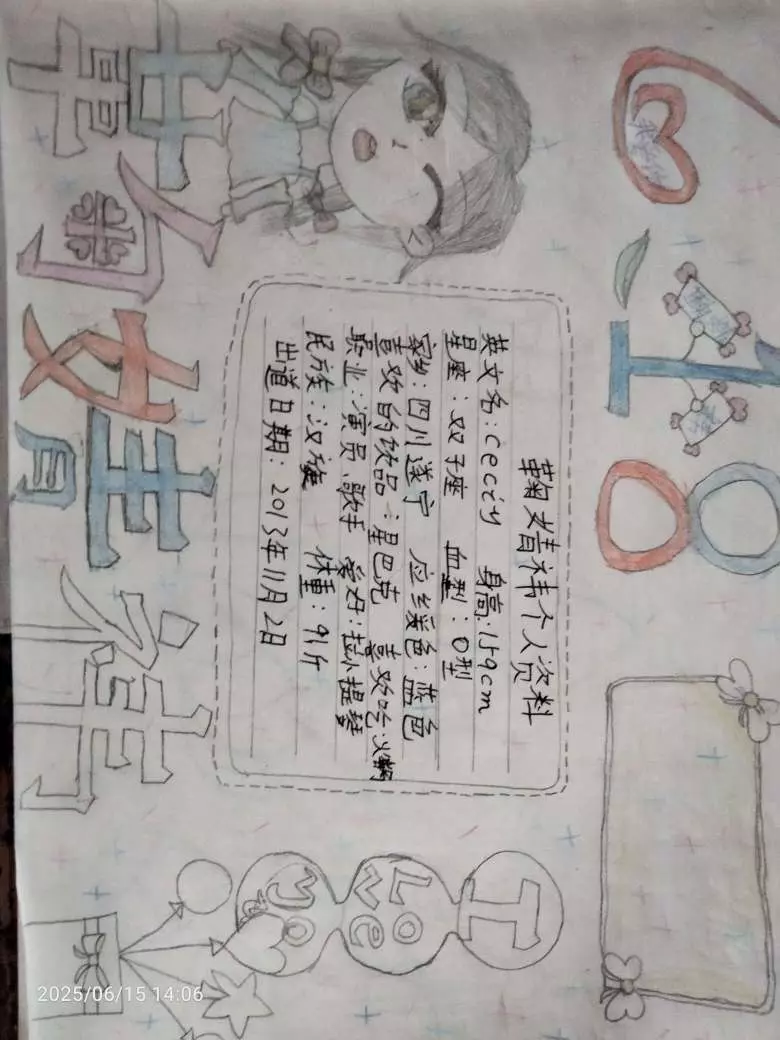 6 18
鞠婧祎
鞠婧祎个人资料
英文名:cecity 身高:159cm
星座:双子座 血型:O型
家乡:四川遂宁 应缓色:蓝色
喜欢的饮品:星巴克 喜欢吃:火锅
职业:演员、歌手 爱好:拉小提琴
民族:汉族 体重:91斤
出道日期:2013年11月2日
I
Love
you
2025/06/15 14:06